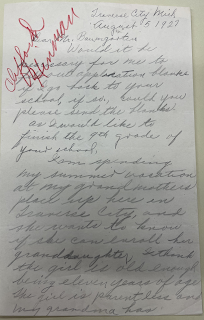 Traverse City Mich
August 5 1927
Clifford
Herman
Would it be
necessary for me to
out application blanks
if I go back to your
school, if so, could you
please send the blanks
as I would like to
finish the 9th grade of
your school.
I am spending
my summer vacation
at my grandmothers
place up here in
Traverse City, and
she wants to know
if she can enroll her
granddaughter. I think
the girl is old enough
being eleven years of age
The girl is parentless and
my grandma has